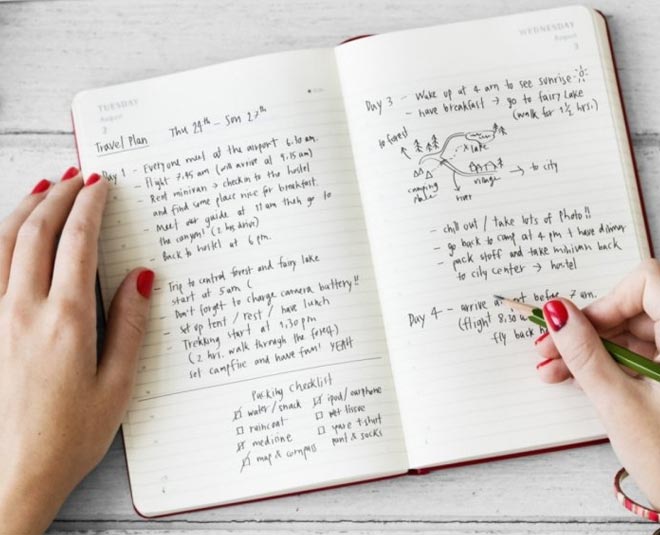 TUESDAY
August
2
Travel Plan Thu 24th - Sun 27th
Day 1 - Everyone meet at the airport 6.10 am.
- Flight 7.45 am (will arrive at 9.15 am)
- Rent minivan → checkin to the hostel
and find some place nice for breakfast.
- Meet our guide at 11 am then go to
the canyons (2 hrs drive)
- Back to hostel at 6 pm.
- Trip to central forest and fairy lake
start at 5 am (
- Don't forget to charge camera battery!!
- Set up tent / rest / have lunch
- Trekking start at 1.30 pm
(2 hrs. walk through the forest)
- set campfire and have fun! YEAH
Packing Checklist
water/snack
raincoat
medicine
map & compass
ipod/earphone
wet tissue
spare t-shirt
pant & socks
WEDNESDAY
August
3
Day 3 - Wake up at 4 am to see sunrise
- have breakfast → go to fairy lake
(walk for 1 1/2 hrs.)
to forest
lake
camping
village
→ to city
river
- chill out / take lots of photo!!
- go back to camp at 4 pm + have dinner
- pack stuff and take minivan back
to city center → hostel
Day 4 - arrive before 7 am.
(flight 8.30
fly back